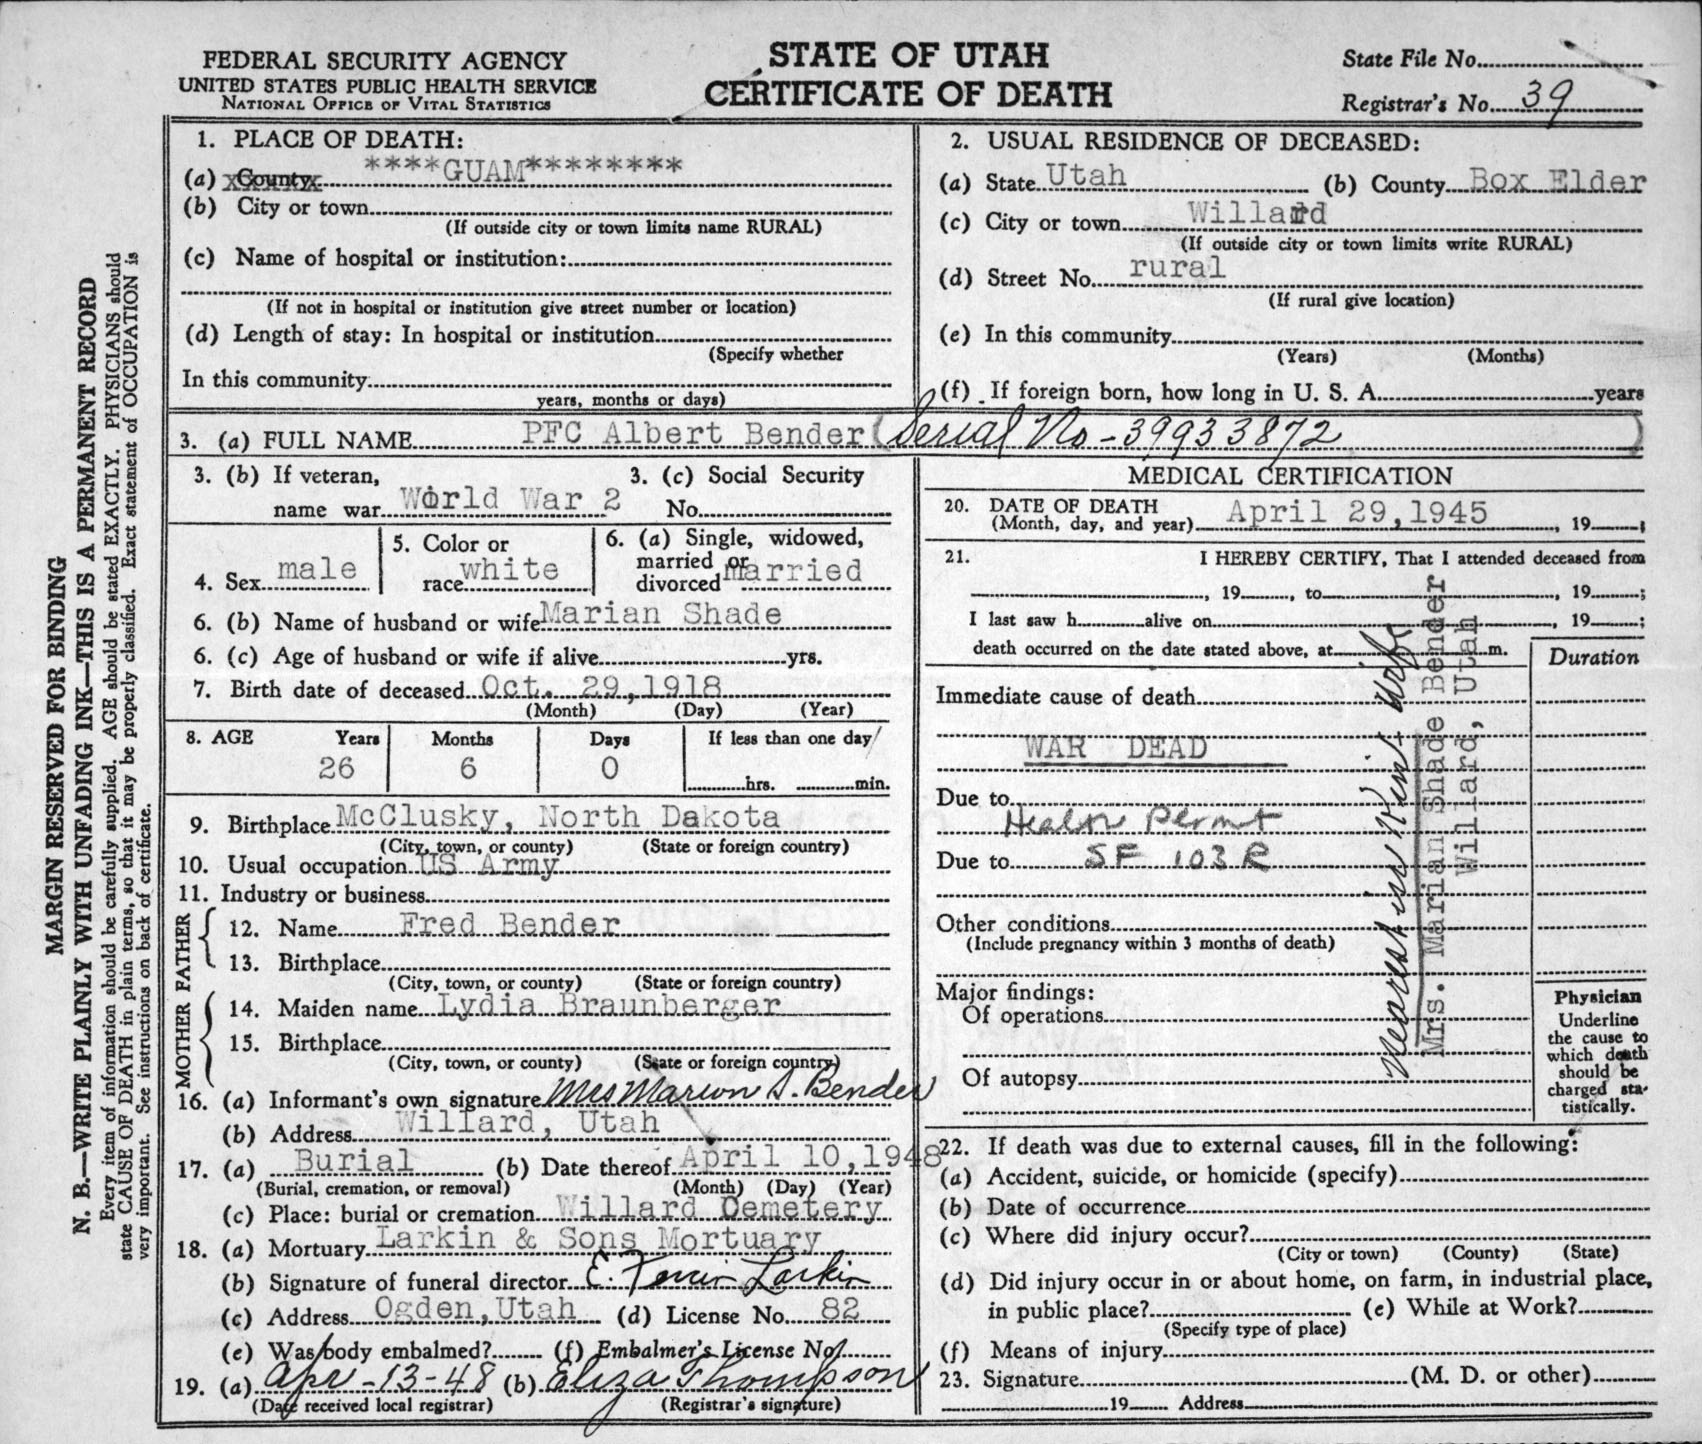 FEDERAL SECURITY AGENCY
UNITED STATES PUBLIC HEALTH SERVICE
NATIONAL OFFICE OF VITAL STATISTICS
STATE OF UTAH
CERTIFICATE OF DEATH
State File No.
Registrar's No. 39
MARGIN RESERVED FOR BINDING
N. B.—WRITE PLAINLY WITH UNFADING INK—THIS IS A PERMANENT RECORD
Every item of information should be carefully supplied. AGE should be stated EXACTLY. PHYSICIANS should
state CAUSE OF DEATH in plain terms, so that it may be properly classified. Exact statement of OCCUPATION is
very important. See instructions on back of certificate.
1. PLACE OF DEATH:
(a) County ****GUAM********
(b) City or town
(If outside city or town limits name RURAL)
(c) Name of hospital or institution:
(If not in hospital or institution give street number or location)
(d) Length of stay: In hospital or institution
(Specify whether
In this community
years, months or days)
2. USUAL RESIDENCE OF DECEASED:
(a) State Utah (b) County Box Elder
(c) City or town Willard
(If outside city or town limits write RURAL)
(d) Street No. rural
(If rural give location)
(e) In this community
(Years) (Months)
(f) If foreign born, how long in U. S. A. years
3. (a) FULL NAME PFC Albert Bender (Serial No - 39933872)
3. (b) If veteran, name war World War 2
3. (c) Social Security No.
4. Sex male
5. Color or race white
6. (a) Single, widowed, married or divorced married
6. (b) Name of husband or wife Marian Shade
6. (c) Age of husband or wife if alive yrs.
7. Birth date of deceased Oct. 29, 1918
(Month) (Day) (Year)
8. AGE Years Months Days If less than one day
26 6 0 hrs. min.
9. Birthplace McClusky, North Dakota
(City, town, or county) (State or foreign country)
10. Usual occupation US Army
11. Industry or business
FATHER
12. Name Fred Bender
13. Birthplace
(City, town, or county) (State or foreign country)
MOTHER
14. Maiden name Lydia Braunberger
15. Birthplace
(City, town, or county) (State or foreign country)
16. (a) Informant's own signature Mrs Marion S. Bender
(b) Address Willard, Utah
17. (a) Burial (b) Date thereof April 10, 1948
(Burial, cremation, or removal) (Month) (Day) (Year)
(c) Place: burial or cremation Willard Cemetery
18. (a) Mortuary Larkin & Sons Mortuary
(b) Signature of funeral director E. Larkin
(c) Address Ogden, Utah (d) License No. 82
(e) Was body embalmed? (f) Embalmer's License No.
19. (a) Apr-13-48 (b) Eliza Thompson
(Date received local registrar) (Registrar's signature)
MEDICAL CERTIFICATION
20. DATE OF DEATH
(Month, day, and year) April 29, 1945, 19 ;
21. I HEREBY CERTIFY, That I attended deceased from
, 19 , to , 19 ;
I last saw h alive on , 19 ;
death occurred on the date stated above, at m.
Duration
Immediate cause of death
WAR DEAD
Due to
Health Permit
Due to SF 103 R
Other conditions
(Include pregnancy within 3 months of death)
Major findings:
Of operations
Of autopsy
Nearest in Kin - Wife
Mrs. Marian Shade Bender
Willard, Utah
Physician
Underline
the cause to
which death
should be
charged sta-
tistically.
22. If death was due to external causes, fill in the following:
(a) Accident, suicide, or homicide (specify)
(b) Date of occurrence
(c) Where did injury occur?
(City or town) (County) (State)
(d) Did injury occur in or about home, on farm, in industrial place,
in public place? (e) While at Work?
(Specify type of place)
(f) Means of injury
23. Signature (M. D. or other)
19 Address